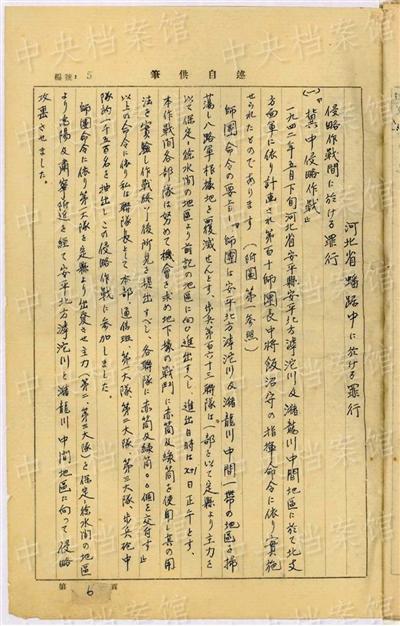 述自供筆
編號: 5
河北省蟠踞中に於ける罪行
侵略作戰間に於ける罪行
(一)「冀中侵略作戰」
一九四二年五月下旬河北省安平縣安平北方滹沱川及瀦龍川中間地區に於て北支
方面軍に依り計画され第百十師團長中將飯沼守の指揮命令に依り實施
せられたものであります (附圖第一参照)
師團命令の要旨「師團は安平北方滹沱川及瀦龍川中間一帶の地區を掃
蕩し八路軍根據地を覆滅せんとす、歩兵第百六十三聯隊は一部を以て定縣より主力を
以て保定、徐水間の地區より前記の地區に向ひ進出すべし 進出日時は 日正午とす、
本作戰間各部隊は努めて機會を求め地下壕の戰鬥に赤筒及緑筒を使用し其の用
法を實驗し作戰終了後所見を提出すべし、各聯隊に赤筒及緑筒 個を交付す」
以上の命令に依り私は聯隊長として本部通信班、第一大隊、第二大隊、第三大隊、歩兵砲中
隊約一千五百名を抽出しこの侵略作戰に参加しました。
師團命令に依り第一大隊を定縣より出發させ主力(第二、第三大隊)を保定、徐水間の地區
より高陽及肅寧附近を經て安平北方滹沱川と瀦龍川中間地區に向って侵略
攻撃させました。
第 6 頁
中央档案馆